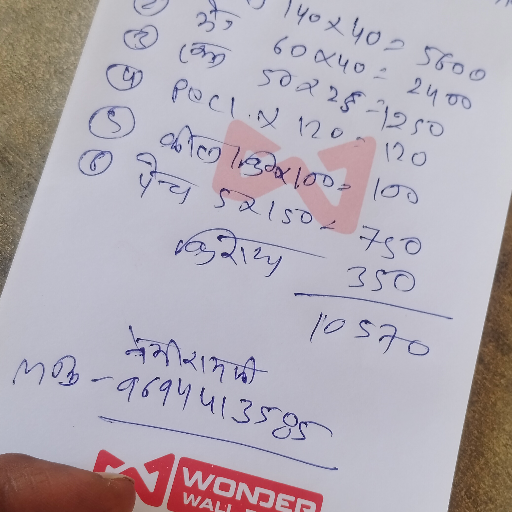 140 x 40 = 5600
③ 60 x 40 = 2400
④ 50 x 25 = 1250
⑤ POCL. x 120 = 120
⑥ कील 1 किग्रा x 100 = 100
पेन्च 5 x 150 = 750
किराया 350
10570
नेमीरामजी
MOB - 9694413585
WONDER
WALL